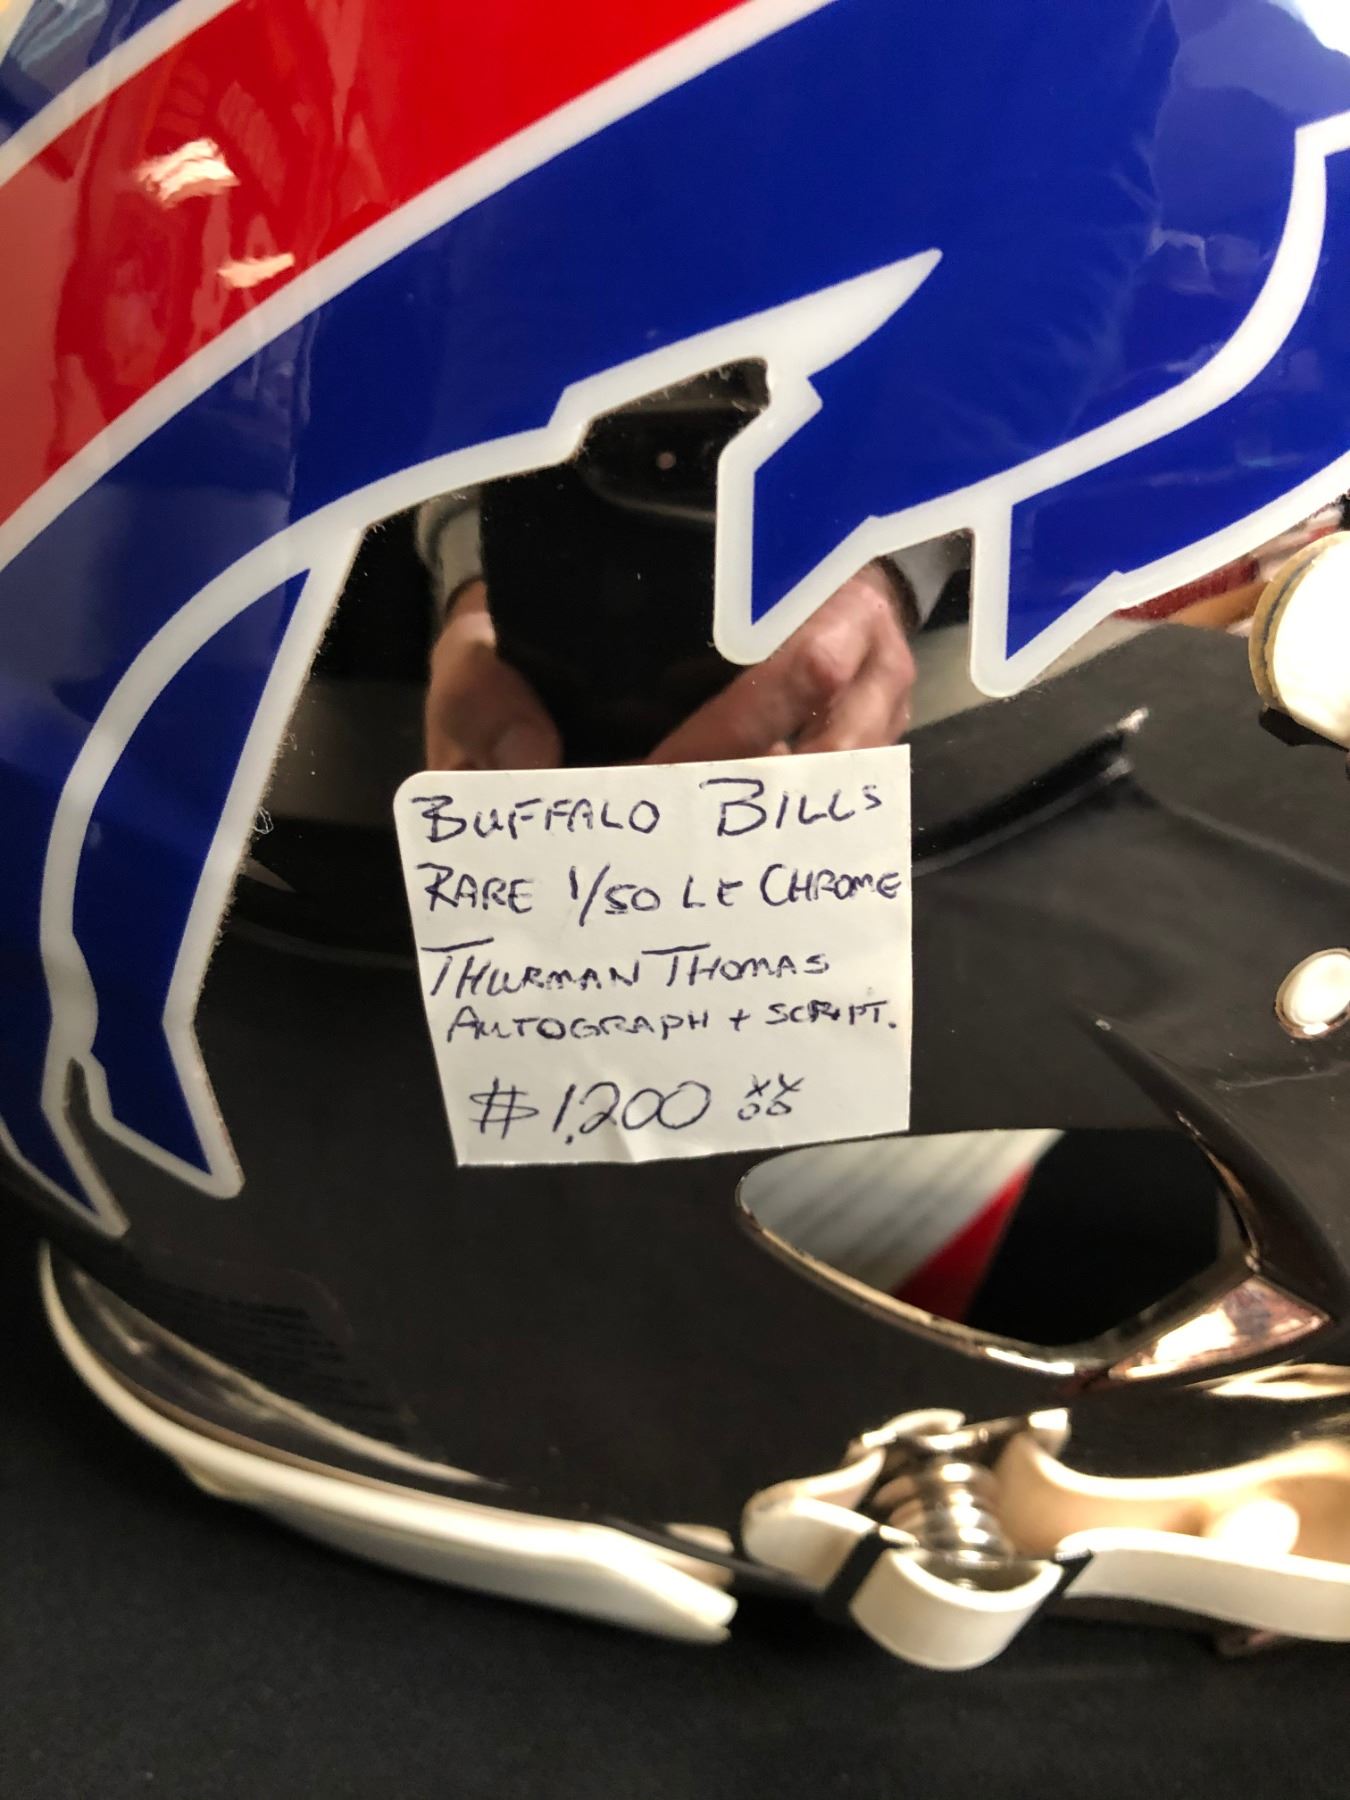 BUFFALO BILLS
RARE 1/50 LE CHROME
THURMAN THOMAS
AUTOGRAPH + SCRIPT.
$1,200 xx/00